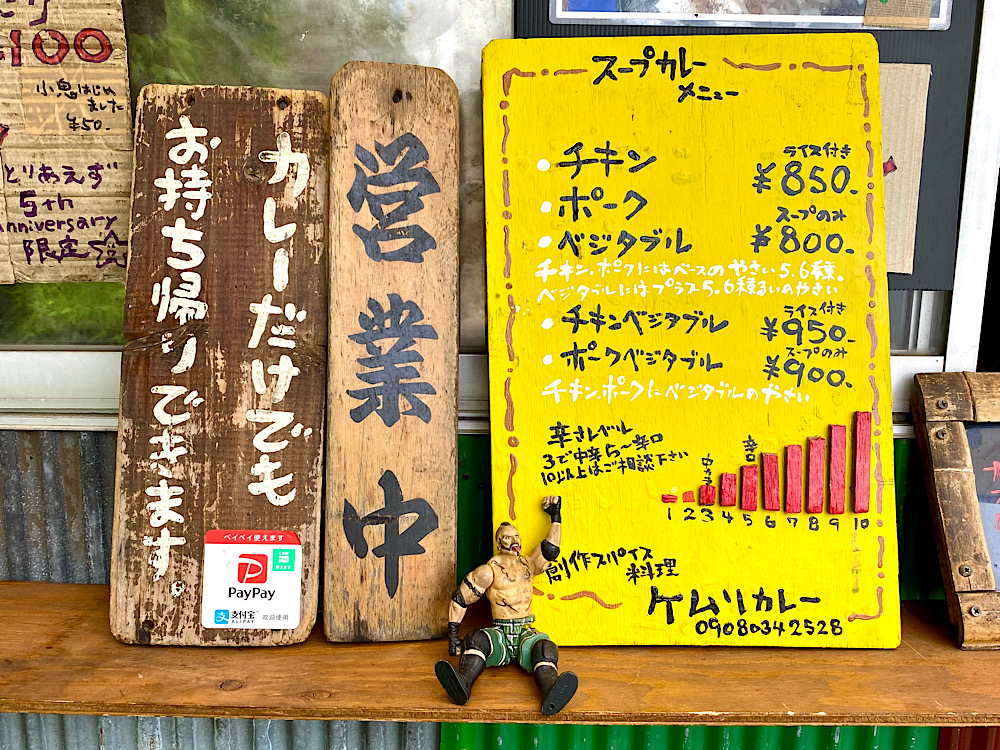 ¥100
小鬼はじめ
ました
¥50.
とりあえず
5th
anniversary
限定
カレーだけでも
お持ち帰りできます。
ペイペイ使えます
PayPay
支付宝
ALIPAY
欢迎使用
営業中
スープカレー
メニュー
・チキン
・ポーク
・ベジタブル
ライス付き
¥850.
スープのみ
¥800.
チキン.ポークにはベースのやさい5.6種。
ベジタブルにはプラス5.6種るいのやさい
・チキンベジタブル
・ポークベジタブル
ライス付き
¥950.
スープのみ
¥900.
チキン.ポークにベジタブルのやさい
辛さレベル
3で中辛5〜辛口
10以上はご相談下さい
中辛
辛口
1 2 3 4 5 6 7 8 9 10
創作スパイス
料理
ケムリカレー
09080342528